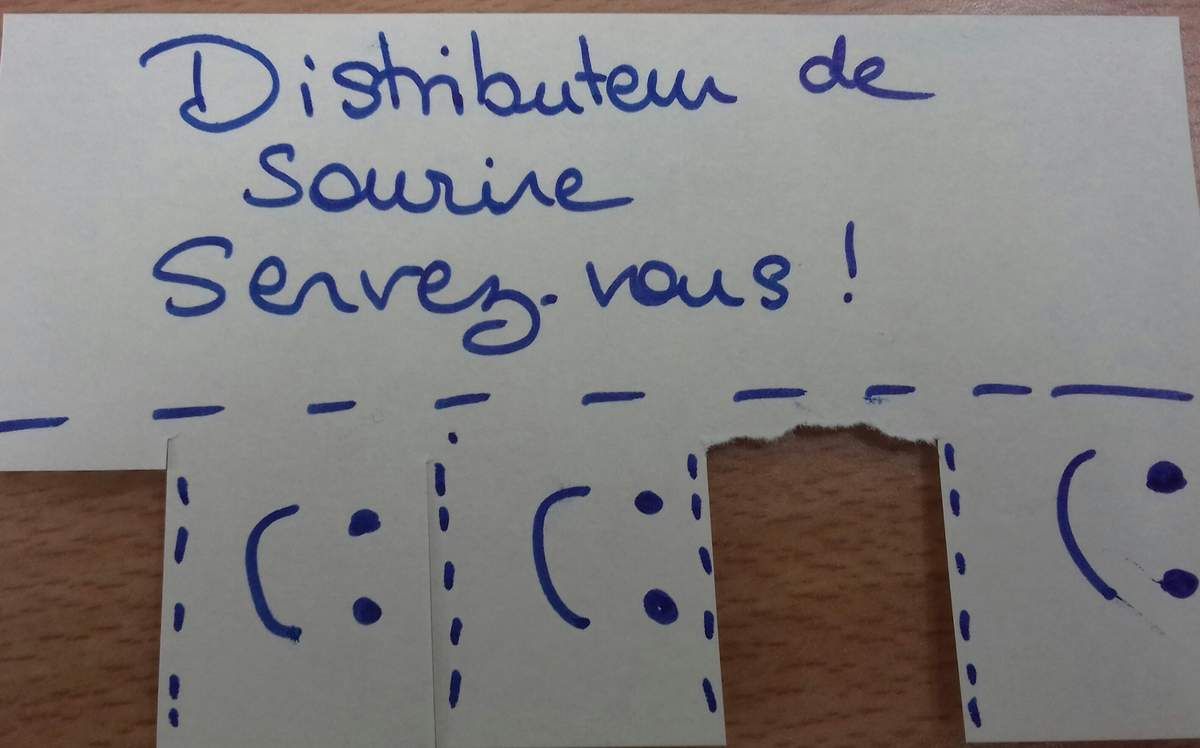 Distributeur de
sourire
Servez-vous !
(:
(:
(: